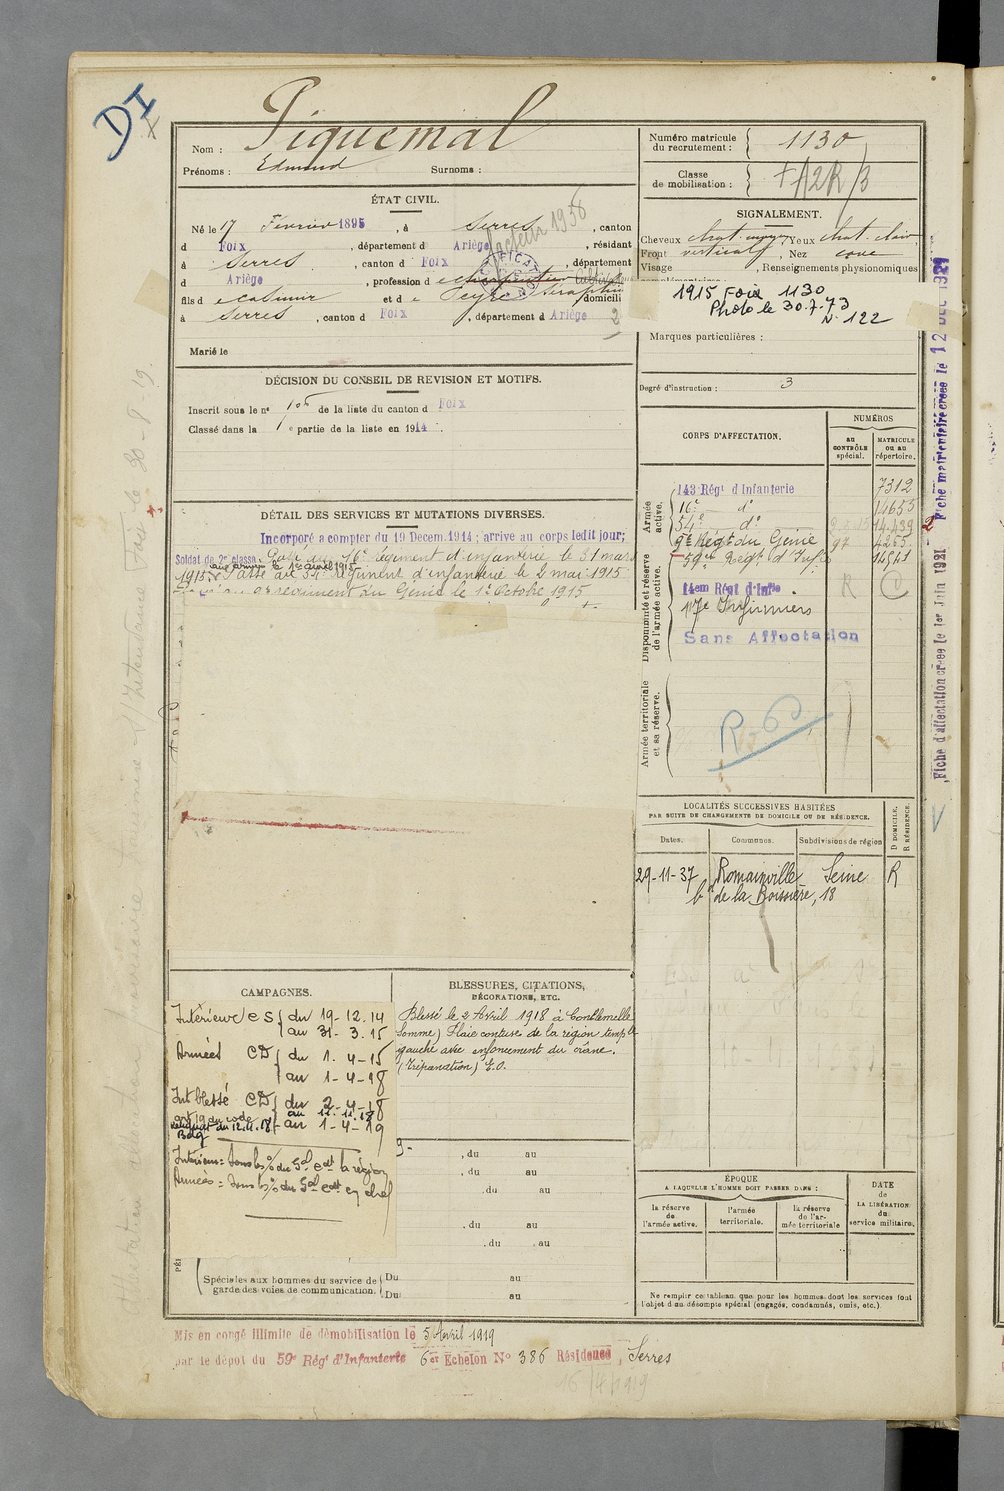 DI
Nom : Piquemal
Prénoms : Edmond Surnoms :
Numéro matricule du recrutement : 1130
Classe de mobilisation :
ÉTAT CIVIL.
Né le 17 Février 1895, à Serres, canton
d Foix, département d Ariège, résidant
à Serres, canton d Foix, département
d Ariège, profession d e charpentier
fils d e Casimir et d e Peyre Séraphine domicili
à Serres, canton d Foix, département d Ariège
2
Marié le
facteur 1938
SIGNALEMENT.
Cheveux chat. Yeux chat. clair
Front vertical, Nez cave
Visage , Renseignements physionomiques
1915 Foix 1130
Photo le 30.7.73
N. 122
Marques particulières :
Degré d'instruction : 3
DÉCISION DU CONSEIL DE REVISION ET MOTIFS.
Inscrit sous le n° de la liste du canton d Foix
Classé dans la 1e partie de la liste en 1914.
DÉTAIL DES SERVICES ET MUTATIONS DIVERSES.
Incorporé a compter du 19 Décem. 1914 ; arrive au corps ledit jour;
Soldat de 2e classe. Passé au 16e Régiment d'infanterie le 31 mars
aux armées le 1er avril 1915
1915. Passé au 54e Régiment d'infanterie le 2 mai 1915
régiment du Génie le 1er Octobre 1915
CORPS D'AFFECTATION.
NUMÉROS
au CONTRÔLE spécial.
MATRICULE ou au répertoire.
Armée active.
143 Régt d'Infanterie 7312
16e d° 14653
54e d° 14.439
9e Régt du Génie 4255
59e Régt d'Infie 14541
Disponibilité et réserve de l'armée active.
14em Régt d'Infie R C
17e Infirmiers
Sans Affectation
Armée territoriale et sa réserve.
Fiche d'affectation créée le 1er Juin 1921
Fiche matriculaire créée le 12 DEC 1921
LOCALITÉS SUCCESSIVES HABITÉES
PAR SUITE DE CHANGEMENTS DE DOMICILE OU DE RÉSIDENCE.
Dates. Communes. Subdivisions de région D DOMICILE. R RÉSIDENCE.
29-11-37 Romainville Seine R
bd de la Boissière, 18
CAMPAGNES.
Intérieur CS du 19-12.14
au 31-3.15
Armées CD du 1-4-15
au 1-4-18
Int blessé CD du 2-4-18
au 11.11.18
art 19 du code
au 1-4-19
Intérieur = sous les o/ du Gal cdt la région
Armées = sous les o/ du Gal cdt en chef
BLESSURES, CITATIONS,
DÉCORATIONS, ETC.
Blessé le 2 Avril 1918 à Contlemelle
Somme) Plaie contuse de la région temple
gauche avec enfoncement du crâne.
(Trépanation) G.O.
, du au
, du au
, du au
, du au
, du au
Spéciales aux hommes du service de garde des voies de communication. Du au
Du au
ÉPOQUE
A LAQUELLE L'HOMME DOIT PASSER DANS :
la réserve de l'armée active.
l'armée territoriale.
la réserve de l'armée territoriale
DATE de LA LIBÉRATION du service militaire.
Ne remplir ce tableau que pour les hommes dont les services font
l'objet d'un décompte spécial (engagés, condamnés, omis, etc.).
Mis en congé illimité de démobilisation le 5 Avril 1919
par le dépot du 59e Régt d'Infanterie 6er Echelon N° 386 Résidence, Serres
16/4/1919